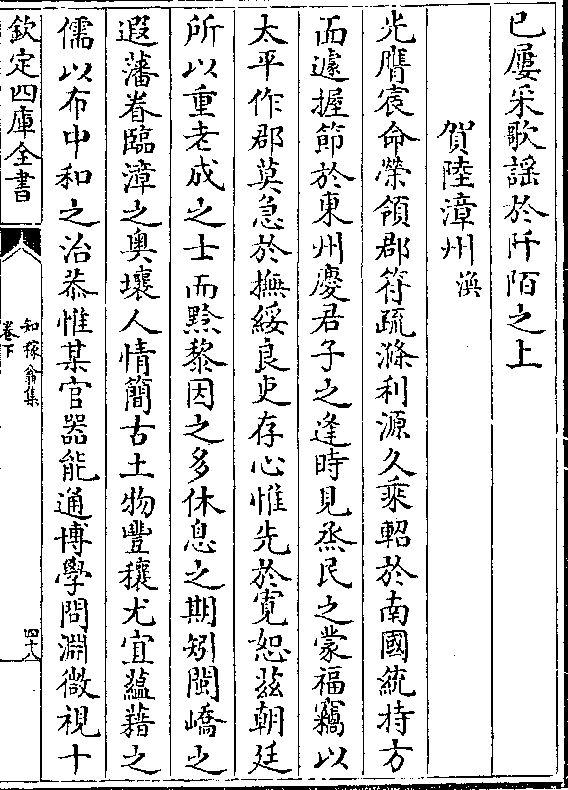 已屢采歌謠於阡陌之上
賀陸漳州渙
光膺宸命榮領郡符疏滌利源久乘軺於南國統持方
面遽握節於東州慶君子之逢時見烝民之蒙福竊以
太平作郡莫急於撫綏良吏存心惟先於寛恕兹朝廷
所以重老成之士而黔黎因之多休息之期矧閩嶠之
遐藩眷臨漳之奧壤人情簡古土物豐穰尤宜蘊藉之
儒以布中和之治恭惟某官器能通博學問淵微視十
欽定四庫全書
知稼翁集
卷下
四十八